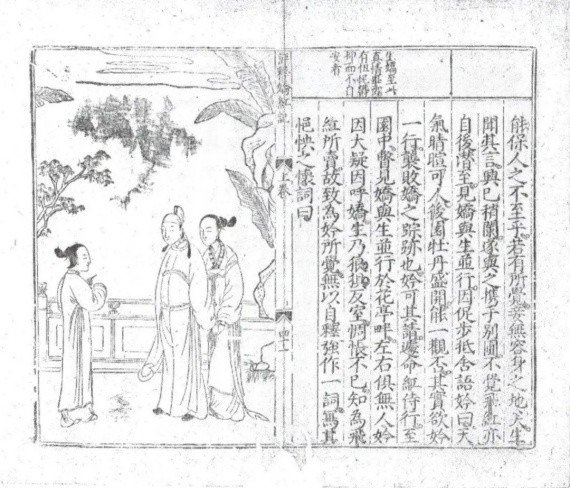 生嬌至此
抑而不自
安者
能保人之不至乎若有所覺妾無容身之地矣生
聞其言興已稍闌遂與之携手別圃不覺飛紅亦
自後潛至見嬌與生並行因促步抵舍語妗曰天
氣晴暄可人後園牡丹盛開能一觀否其實欲妗
一行襲敗嬌之踪跡也妗可其請遽命紅侍行至
園中瞥見嬌與生並行於花亭畔左右俱無人妗
因大疑因呼嬌生乃狼狽反室惆悵不已知為飛
紅所賣故致為妗所覺無以自釋強作一詞寫其
悒怏之懷詞曰
上卷